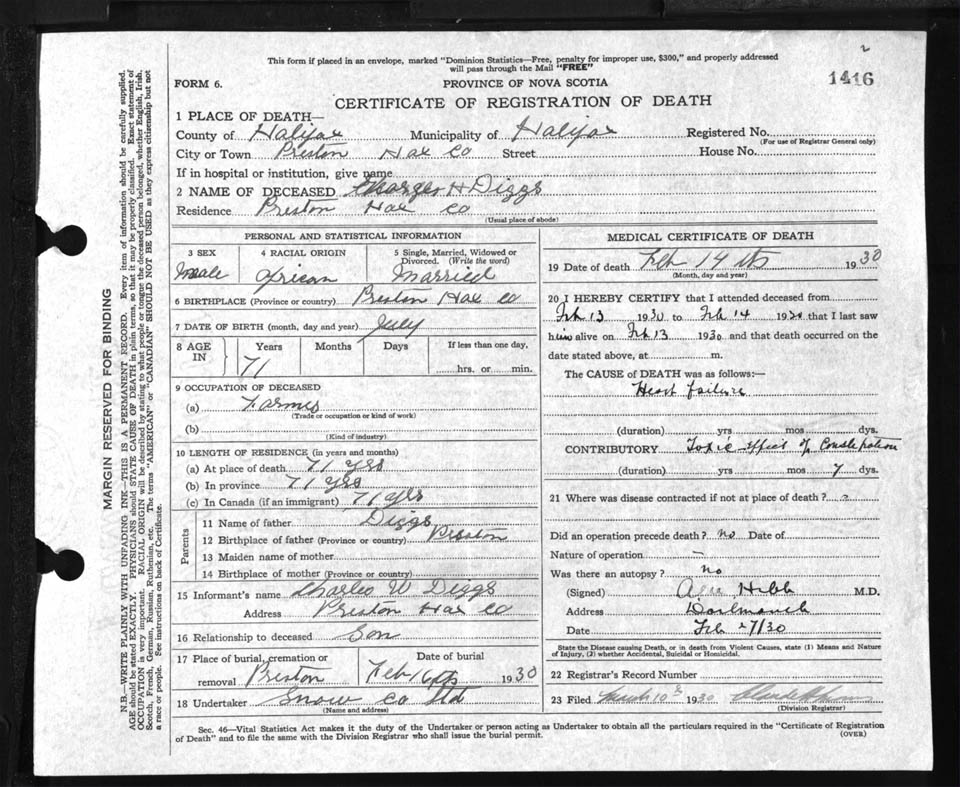 This form if placed in an envelope, marked "Dominion Statistics—Free, penalty for improper use, $300," and properly addressed
will pass through the Mail "FREE"
2
1416
FORM 6.
PROVINCE OF NOVA SCOTIA
CERTIFICATE OF REGISTRATION OF DEATH
1 PLACE OF DEATH—
County of Halifax Municipality of Halifax Registered No.
(For use of Registrar General only)
City or Town Preston Hax Co Street House No.
If in hospital or institution, give name
2 NAME OF DECEASED Charles H Diggs
Residence Preston Hax Co
(Usual place of abode)
PERSONAL AND STATISTICAL INFORMATION
3 SEX
Male
4 RACIAL ORIGIN
African
5 Single, Married, Widowed or
Divorced. (Write the word)
Married
6 BIRTHPLACE (Province or country) Preston Hax Co
7 DATE OF BIRTH (month, day and year) July
8 AGE
IN
Years
71
Months
Days
If less than one day,
hrs. or min.
9 OCCUPATION OF DECEASED
(a) Farmer
(Trade or occupation or kind of work)
(b)
(Kind of industry)
10 LENGTH OF RESIDENCE (in years and months)
(a) At place of death 71 yrs
(b) In province 71 yrs
(c) In Canada (if an immigrant) 71 yrs
Parents
11 Name of father Diggs
12 Birthplace of father (Province or country) Preston
13 Maiden name of mother
14 Birthplace of mother (Province or country)
15 Informant's name Charles W Diggs
Address Preston Hax Co
16 Relationship to deceased Son
17 Place of burial, cremation or
removal Preston
Date of burial
Feb 16 1930
18 Undertaker Snow Co Ltd
(Name and address)
MEDICAL CERTIFICATE OF DEATH
19 Date of death Feb 14 1930
(Month, day and year)
20 I HEREBY CERTIFY that I attended deceased from
Feb 13 1930 to Feb 14 1930 that I last saw
him alive on Feb 13 1930 and that death occurred on the
date stated above, at m.
The CAUSE of DEATH was as follows:—
Heart failure
(duration) yrs mos dys.
CONTRIBUTORY Toxic effect of Constipation
(duration) yrs mos 7 dys.
21 Where was disease contracted if not at place of death?
Did an operation precede death? no Date of
Nature of operation —
Was there an autopsy? no
(Signed) M.D.
Address Dartmouth
Date Feb 27/30
State the Disease causing Death, or in death from Violent Causes, state (1) Means and Nature
of Injury, (2) whether Accidental, Suicidal or Homicidal.
22 Registrar's Record Number
23 Filed March 10 1930
(Division Registrar)
Sec. 46—Vital Statistics Act makes it the duty of the Undertaker or person acting as Undertaker to obtain all the particulars required in the "Certificate of Registration
of Death" and to file the same with the Division Registrar who shall issue the burial permit.
(OVER)
MARGIN RESERVED FOR BINDING
N.B.—WRITE PLAINLY WITH UNFADING INK—THIS IS A PERMANENT RECORD. Every item of information should be carefully supplied.
AGE should be stated EXACTLY. PHYSICIANS should STATE CAUSE OF DEATH in plain terms, so that it may be properly classified. Exact statement of
OCCUPATION is very important. RACIAL ORIGIN will be described by stating to what people or tongue the deceased person belonged, whether English, Irish,
Scotch, French, German, Russian, Ruthenian, etc. The terms "AMERICAN" or "CANADIAN" SHOULD NOT BE USED as they express citizenship but not
a race or people. See instructions on back of Certificate.